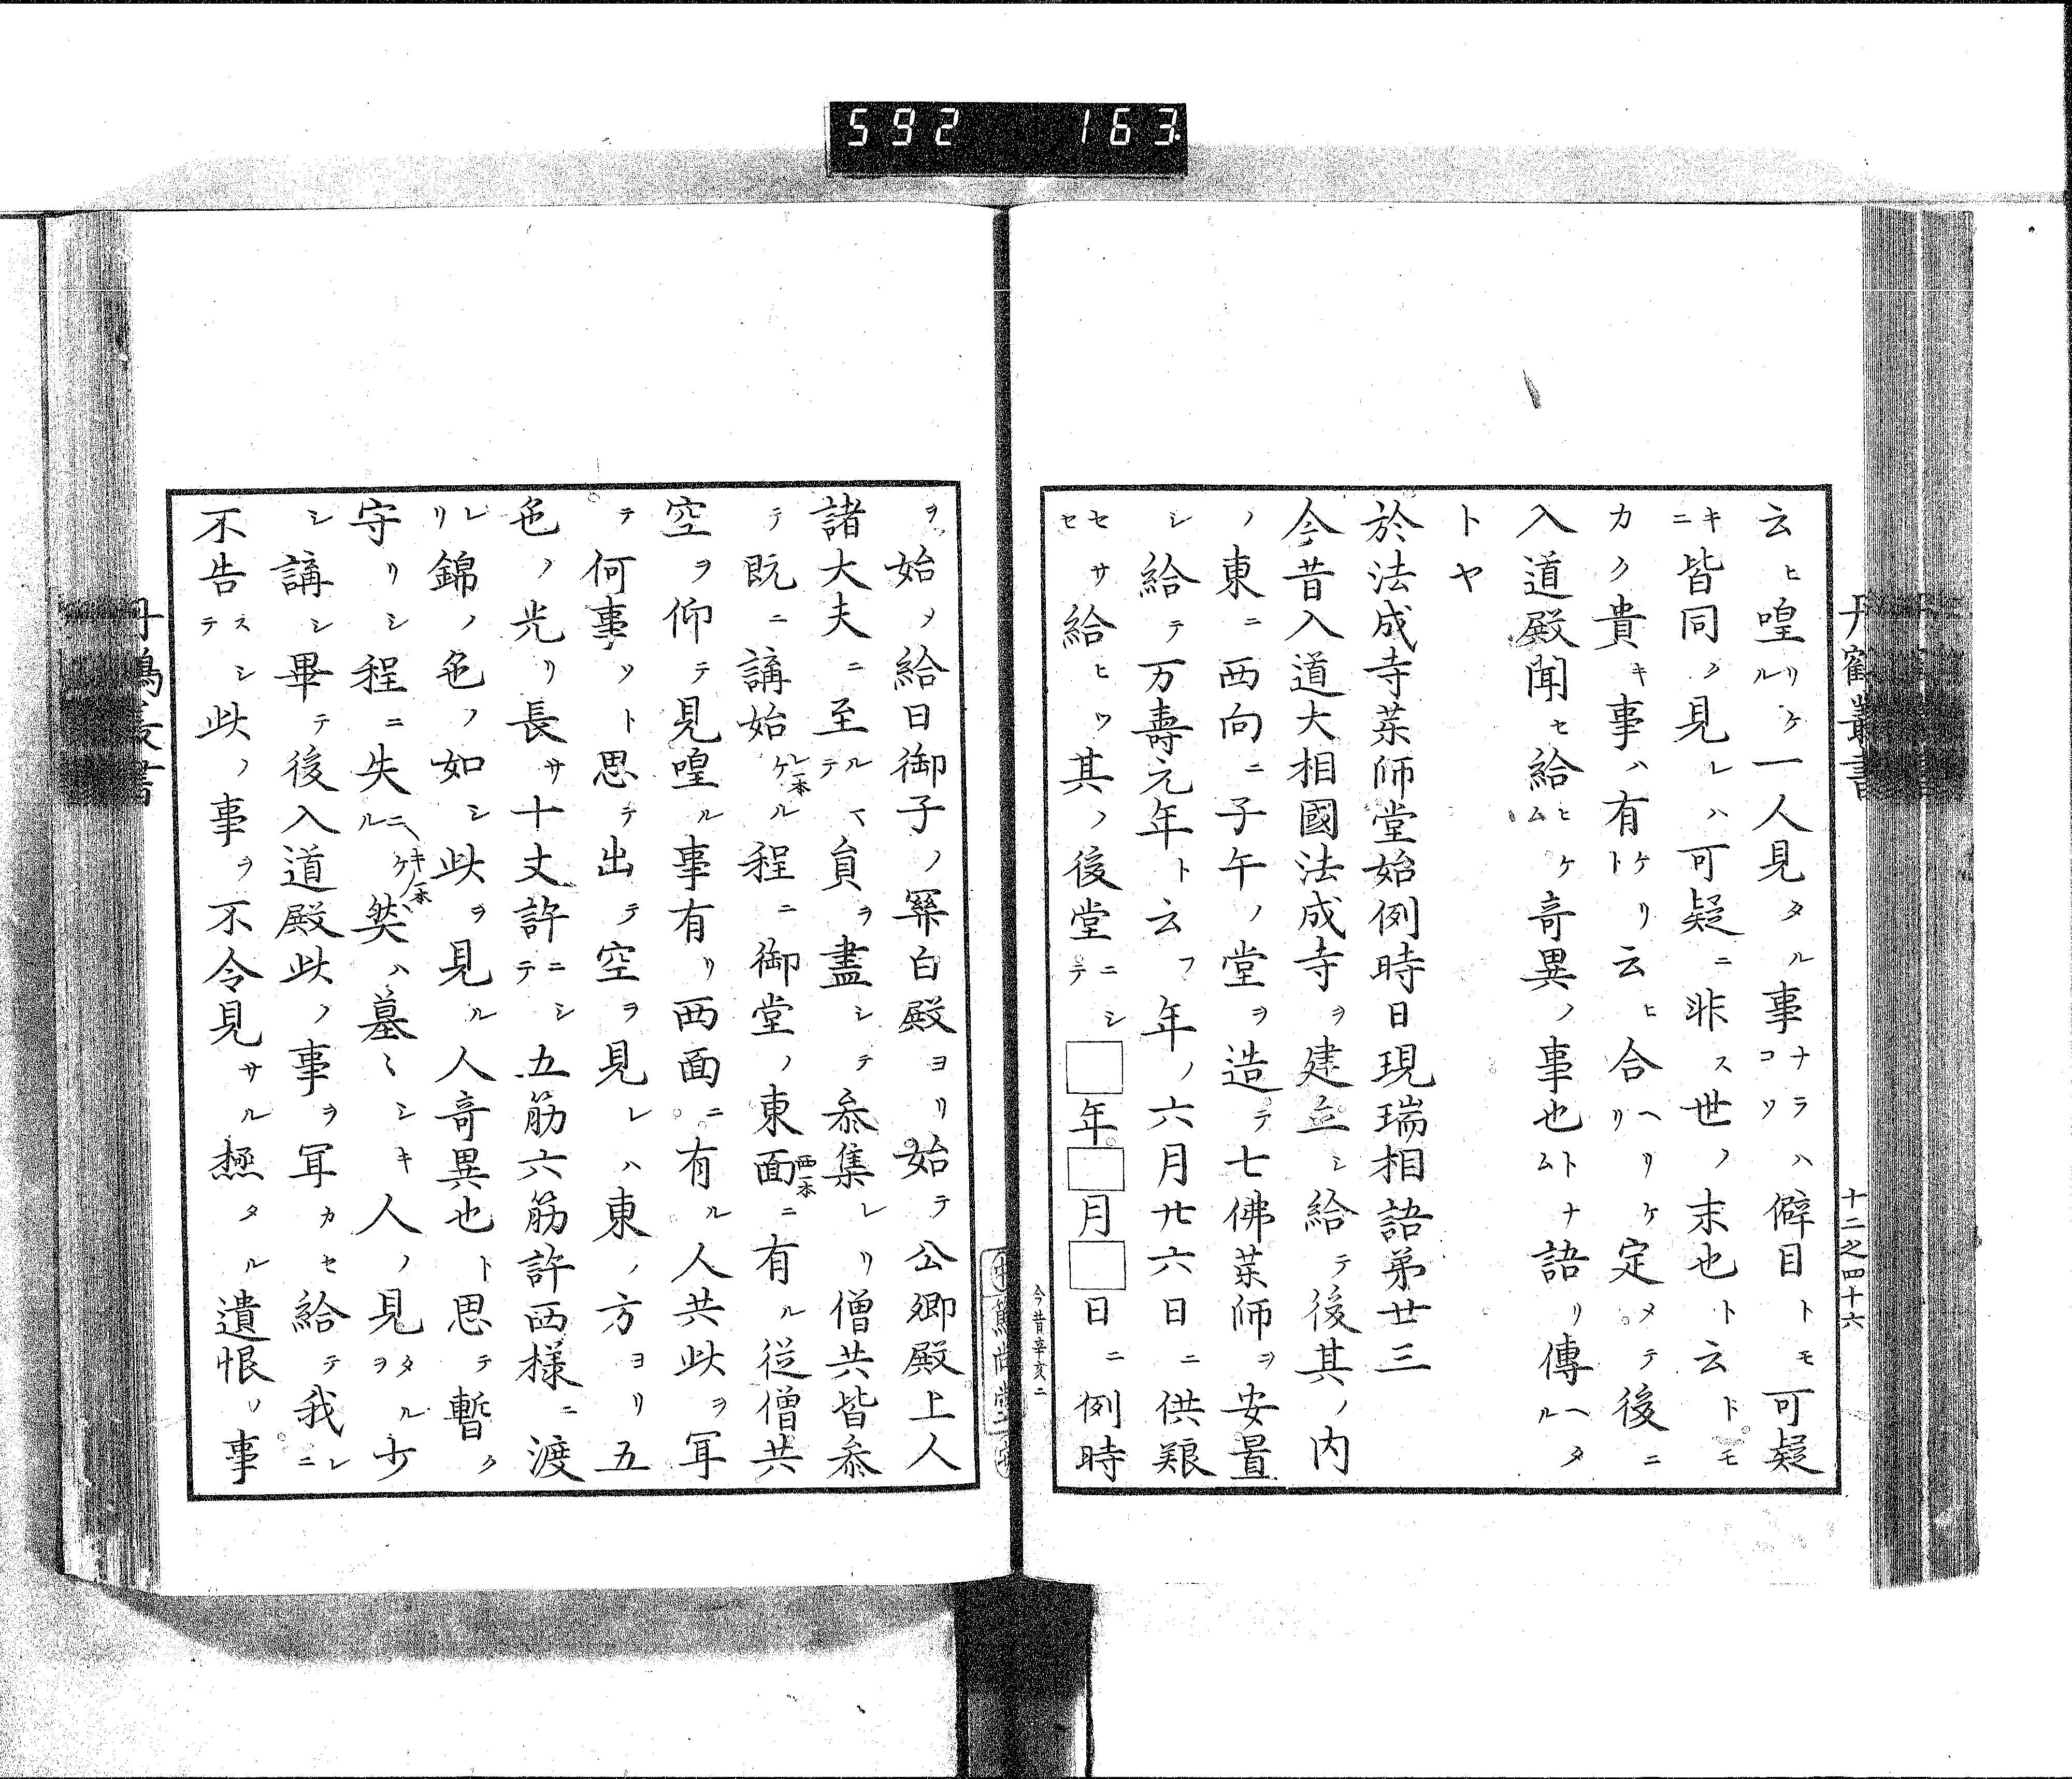 592 163
丹鶴叢書
十二之四十六
云ヒ喤リケル一人見タル事ナラハコソ僻目トモ可疑
キニ皆同ク見レハ可疑ニ非ス世ノ末也ト云トモ
カク貴キ事ハ有ケリト云ヒ合ヘリケリ定メテ後ニ
入道殿聞セ給ヒケム奇異ノ事也トナム語リ傳ヘタル
トヤ
於法成寺薬師堂始例時日現瑞相語第廿三
今昔入道大相國法成寺ヲ建立シ給テ後其ノ内
ノ東ニ西向ニ子午ノ堂ヲ造テ七佛薬師ヲ安置
シ給テ万壽元年ト云フ年ノ六月廿六日ニ供養
セサセ給ヒツ其ノ後堂ニシテ□年□月□日ニ例時
今昔辛亥二
ヲ始メ給日御子ノ關白殿ヨリ始テ公卿殿上人
諸大夫ニ至ルマテ員ヲ盡シテ参集レリ僧共皆参
テ既ニ講始ケルレ一本程ニ御堂ノ東面西一本ニ有ル從僧共
空ヲ仰テ見喤ル事有リ西面ニ有ル人共此ヲ聞
テ何事ソト思テ出テ空ヲ見レハ東ノ方ヨリ五
色ノ光リ長サ十丈許ニシテ五筋六筋許西様ニ渡
レリ錦ノ色ノ如シ此ヲ見ル人奇異也ト思テ暫ク
守リシ程ニ失ニケルキ一本然ハ墓〻シキ人ノ見タルヲ少
シ講シ畢テ後入道殿此ノ事ヲ聞カセ給テ我レニ
不告スシテ此ノ事ヲ不令見サル極タル遺恨ノ事
丹鶴叢書